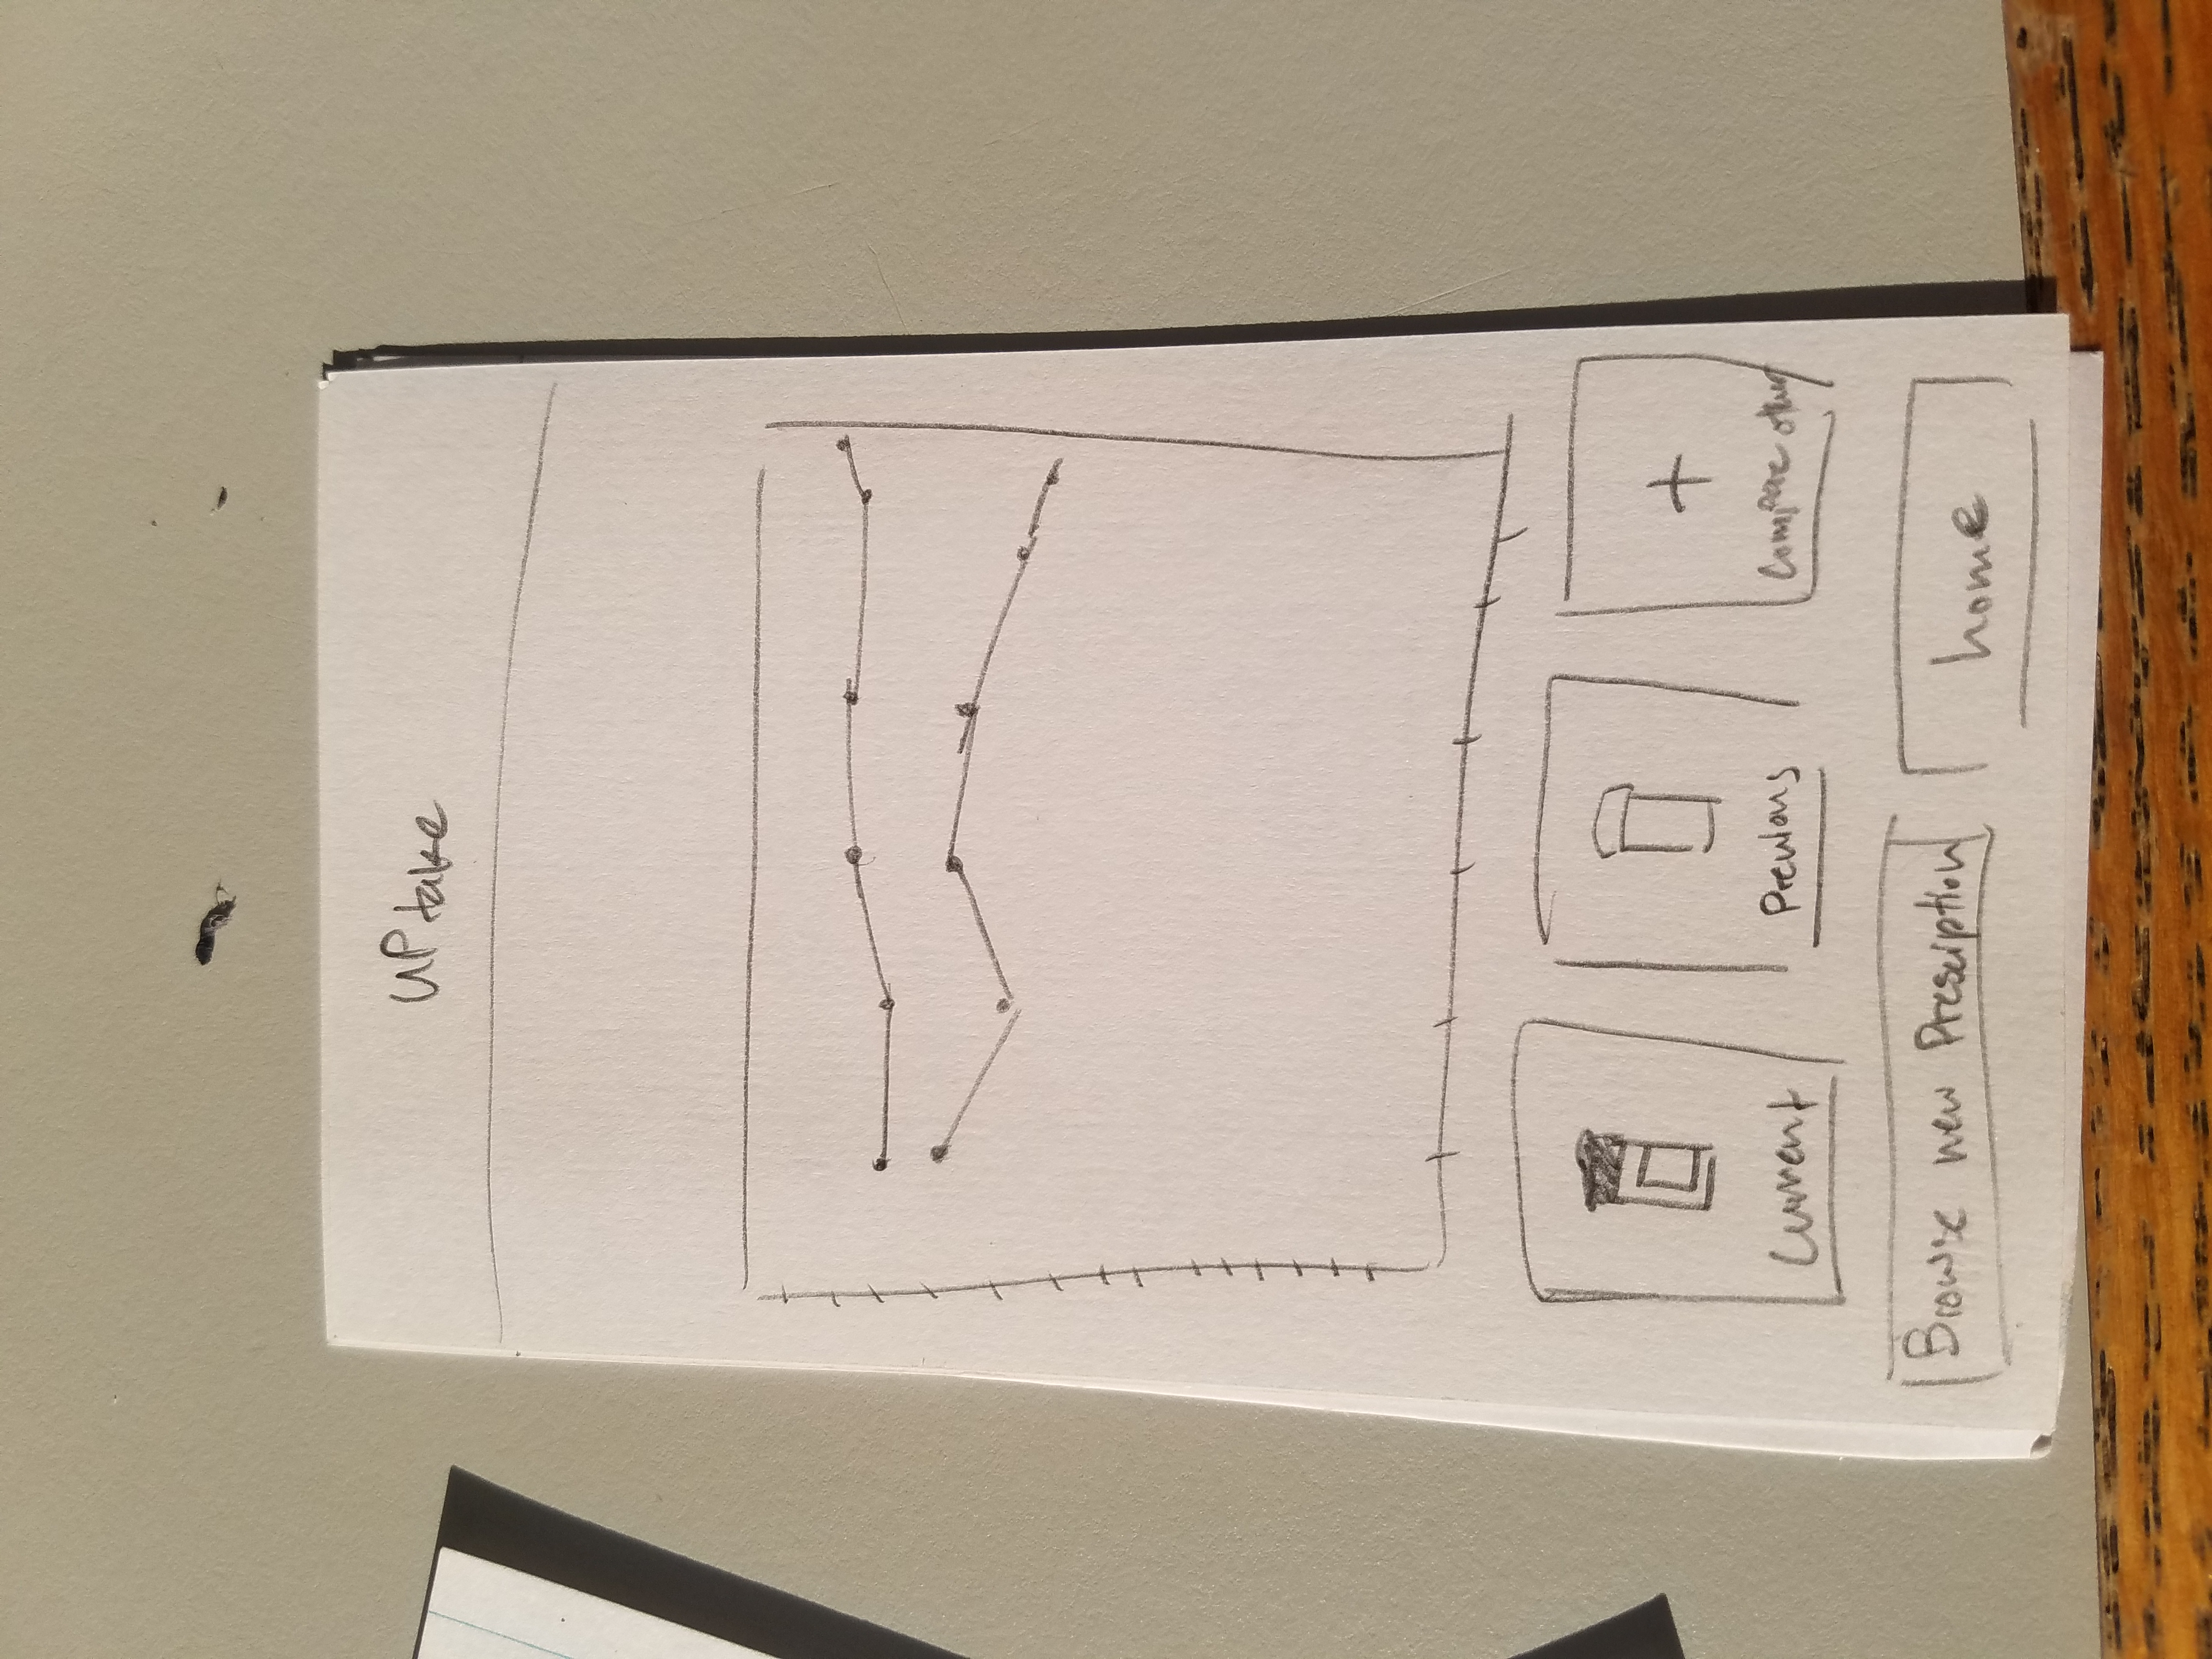 UPtake
Current
Previous
+
Compare other
Browse new Presciption
home